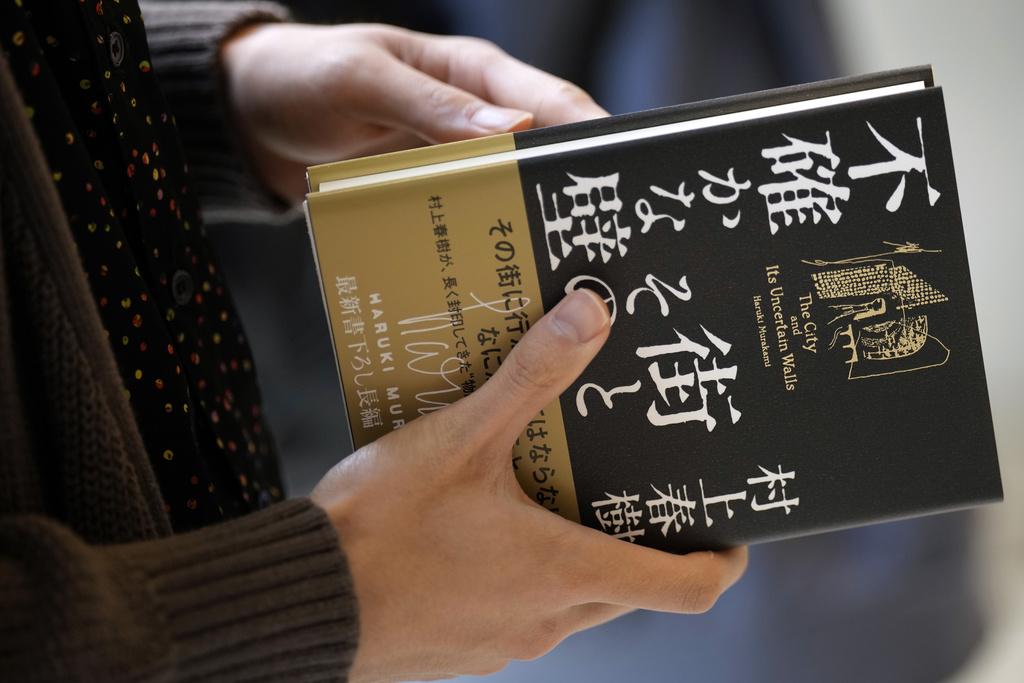 村上春樹
街と
その
不確かな壁
The City
and
Its Uncertain Walls
Haruki Murakami
その街に行
なに
はならな
村上春樹が、長く封印してきた"物
HARUKI MUR
最新書下ろし長編